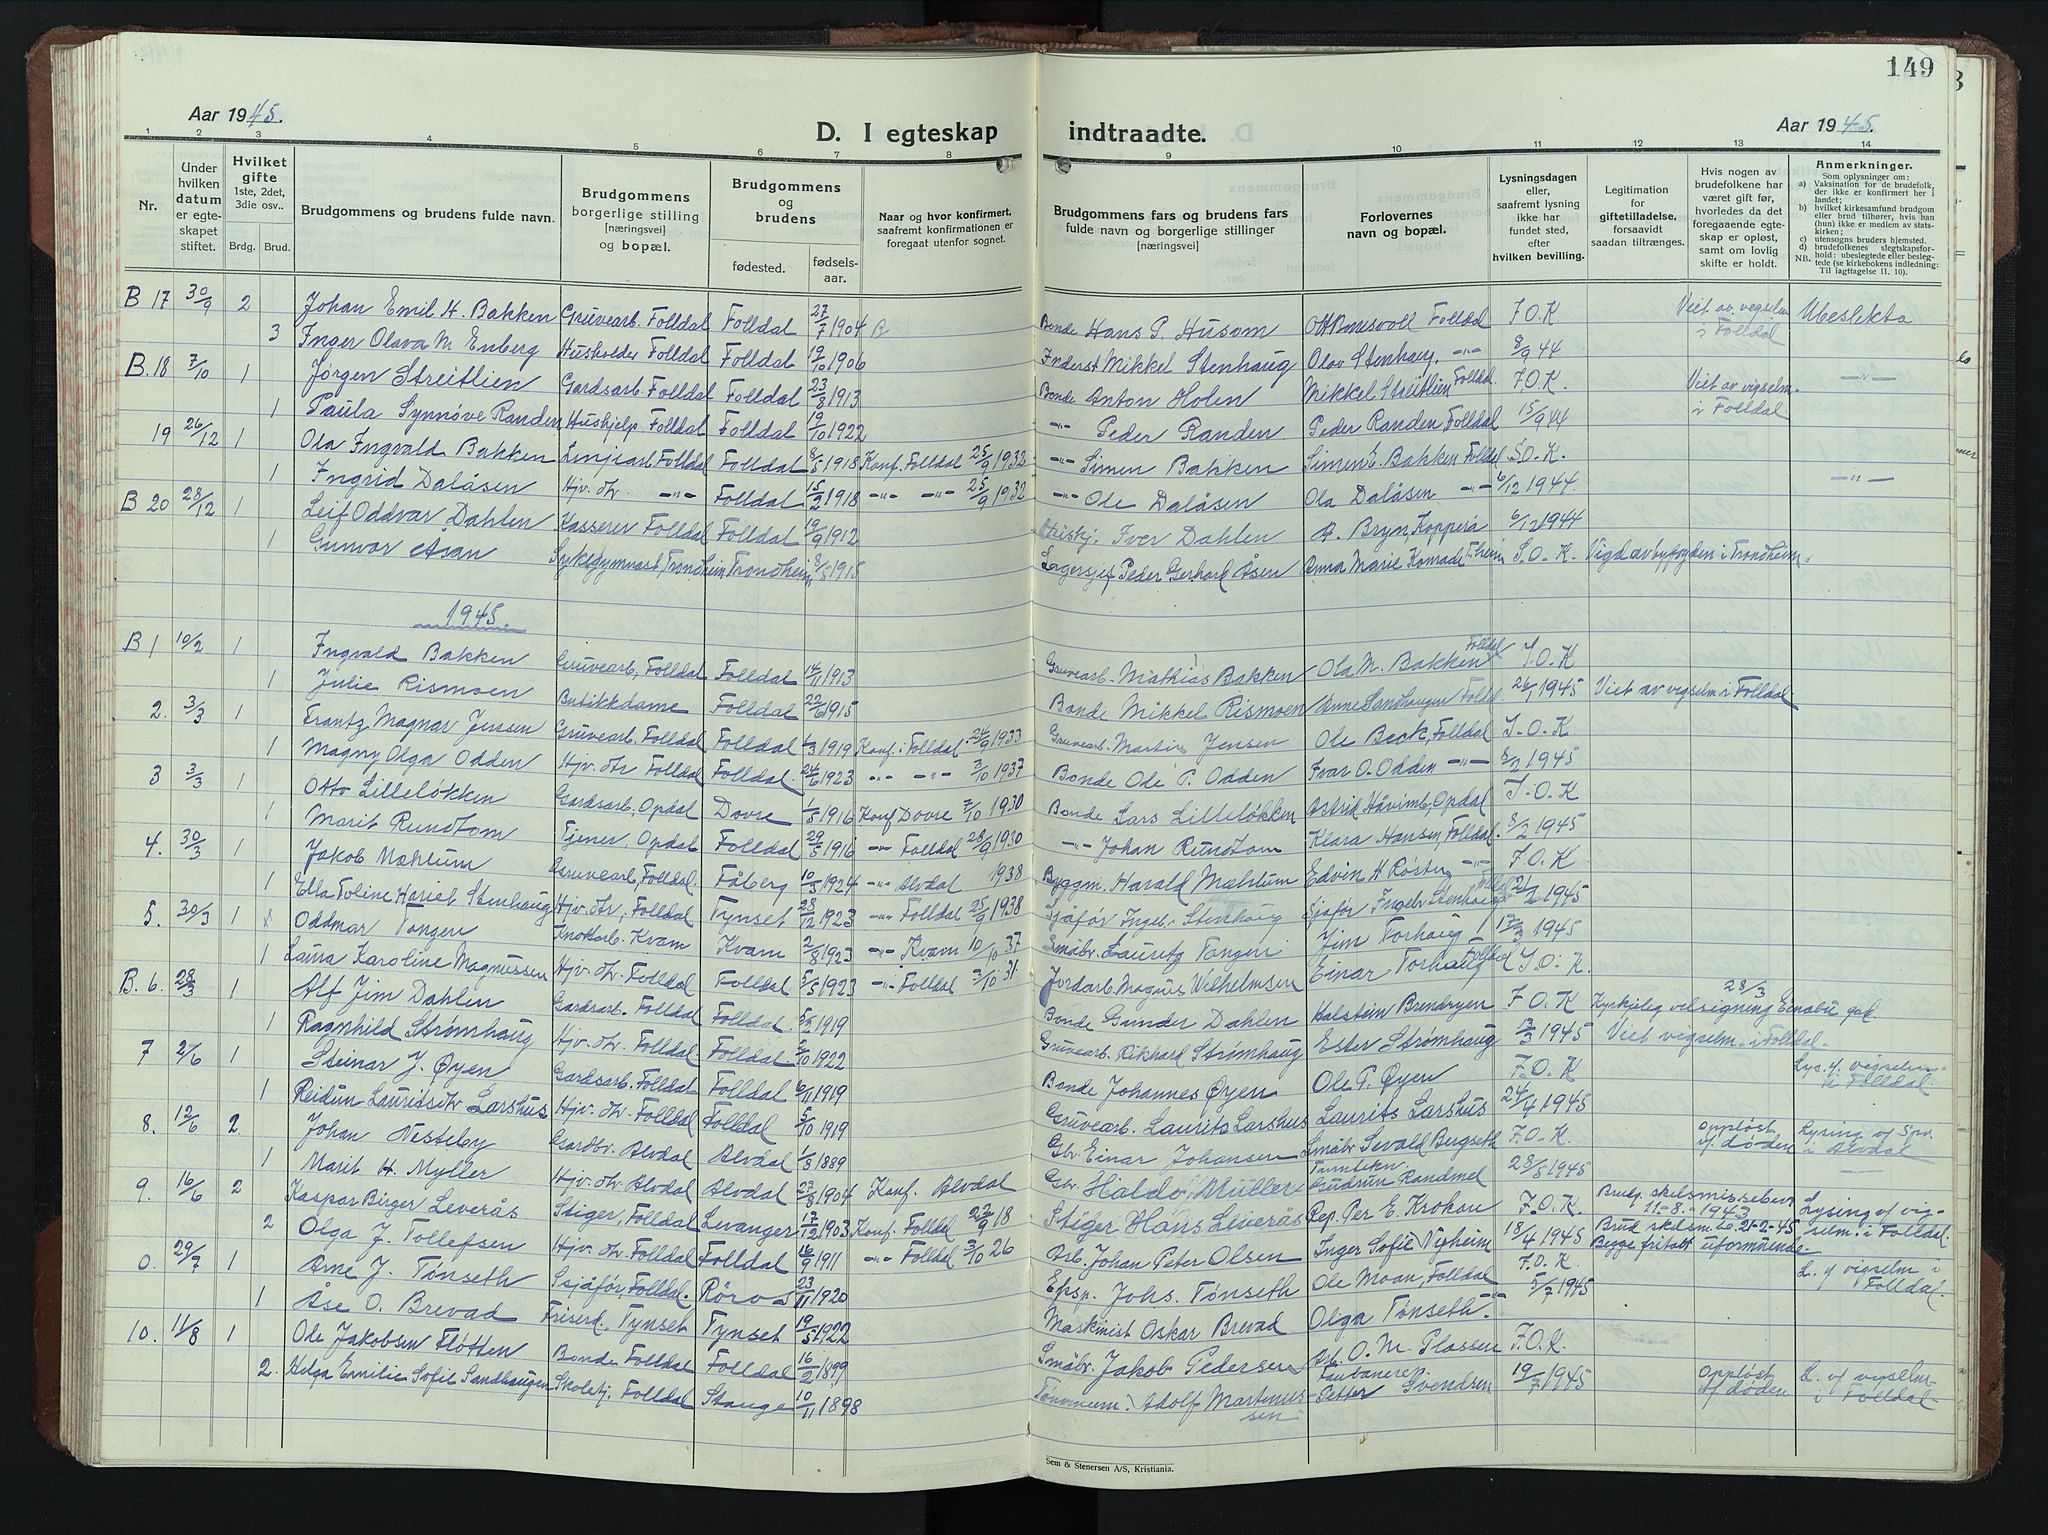 149
Aar 1945.
D. I egteskap indtraadte.
Aar 1945.
1 2 3 4 5 6 7 8 9 10 11 12 13 14
Nr.
Under hvilken datum er egteskapet stiftet.
Hvilket gifte 1ste, 2det, 3die osv..
Brdg. Brud.
Brudgommens og brudens fulde navn.
Brudgommens borgerlige stilling [næringsvei] og bopæl.
Brudgommens og brudens
fødested. fødselsaar.
Naar og hvor konfirmert, saafremt konfirmationen er foregaat utenfor sognet.
Brudgommens fars og brudens fars fulde navn og borgerlige stillinger [næringsvei]
Forlovernes navn og bopæl.
Lysningsdagen eller, saafremt lysning ikke har fundet sted, efter hvilken bevilling.
Legitimation for giftetilladelse, forsaavidt saadan tiltrænges.
Hvis nogen av brudefolkene har været gift før, hvorledes da det foregaaende egteskap er opløst, samt om lovlig skifte er holdt.
Anmerkninger.
Som oplysninger om:
a) Vaksination for de brudefolk, der ikke er konfirmert her i landet;
b) hvilket kirkesamfund brudgom eller brud tilhører, hvis han (hun) ikke er medlem av statskirken;
c) utensogns bruders hjemsted.
d) brudefolkenes slegtskapsforhold: ubeslegtede eller beslegtede (se kirkebokens indledning: NB. Til iagttagelse II. 10).
B 17 30/9 2 Johan Emil H. Bakken Gruvearb. Folldal Folldal 27/7 1904 B Bonde Hans P. Husom Folldal F.O.K Viet av vigselm i Folldal Ubeslekta
3 Inger Olava M Enberg Husholder Folldal Folldal 1906 Inderst Mikkel Stenhaug Olav Stenhaug -"- 8/9 44
B. 18 7/10 1 Jørgen Streitlien Gardsarb. Folldal Folldal 23/8 1913 Bonde Anton Holen Mikkel Streitlien Folldal F.O.K. Viet av vigselm. i Folldal -"-
1 Paula Synnøve Randen Hushjelp Folldal Folldal 19/10 1922 -"- Peder Randen Peder Randen Folldal 15/9 44
19 26/12 1 Ola Ingvald Bakken Linjearb. Folldal Folldal 8/5 1918 Konf. Folldal 25/9 1932 -"- Simen Bakken Simen E. Bakken Folldal S.O.K. -"-
1 Ingrid Dalåsen Hjv. dtr. -"- Folldal 15/2 1918 -"- -"- 25/9 1932 -"- Ole Dalåsen Ola Dalåsen -"- 6/12 1944.
B 20 28/12 1 Leif Oddvar Dahlen Kasserer Folldal Folldal 19/9 1912 Iver Dahlen A. Bryn, Kopperå 6/12 1944
1 Gunvor Åsan Sykegymnast, Trondheim Trondheim 8/5 1915 Lagersjef Peder Gerhard Åsen Anna Marie Konrade T.heim S.O.K. Vigd av byfogden i Trondheim.
1945
B 1 10/2 1 Ingvald Bakken Gruvearb, Folldal Folldal 14/11 1913 Gruvearb. Mathias Bakken Ola M. Bakken Folldal S.O.K
1 Julie Rismoen Butikkdame Folldal 22/6 1915 Bonde Mikkel Rismoen Anne Sandhaugen Folldal 26/1 1945 Viet av vigselm i Folldal
2. 3/3 1 Frantz Magnar Jensen Gruvearb. Folldal Folldal 1/3 1919 Konf. i Folldal 24/9 1933 Gruvearb. Martin Jensen Ole Beck, Folldal S.O.K
1 Magny Olga Odden Hjv. dtr Folldal Folldal 24/6 1923 -"- -"- 3/10 1937 Bonde Ole P. Odden Ivar O. Odden -"- 8/2 1945
3 3/3 1 Otto Lilleløkken Gardsarb, Opdal Dovre 1/5 1916 Konf Dovre 7/10 1930 Bonde Lars Lilleløkken Astrid Håvimb, Opdal S.O.K
1 Marit Rundtom Tjener, Opdal Folldal 29/5 1916 -"- Folldal 28/9 1930 -"- Johan Rundtom Klara Hansen, Folldal. 8/2 1945
4. 30/3 1 Jakob Mæhlum Gruvearb, Folldal. Fåberg 10/5 1924 -"- Alvdal 1938 Byggm. Harald Mæhlum Edvin H Røsten -"- F.O.K
1 Ella Toline Hariet Stenhaug Hjv. dtr, Folldal Tynset 28/12 1923 -"- Folldal 25/9 1938 Sjåfør Ingebr. Stenhaug Sjåfør Ingebr Stenhaug Folldal 21/2 1945
5. 30/3 1 Oddmar Tangen Knottarb. Kvam Kvam 2/8 1923 -"- Kvam 10/10 37 Småbr. Lauritz Tangen Jim Torhaug 13/3 1945
1 Laura Karoline Magnussen Hjv. dtr. Folldal Folldal 5/5 1923 -"- Folldal 3/10 31 Jordarb. Magnus Wilhelmsen Einar Torhaug Folldal S.O.K.
B. 6. 28/3 1 Alf Jim Dahlen Gardsarb. Folldal Folldal 5/2 1919 Bonde Gunder Dahlen Halstein Brendryen F.O.K Kyrkjeleg velsigning Einabu 28/3
1 Ragnhild Strømhaug Hjv. dtr. Folldal Folldal 2/10 1922 Gruvearb. Rikhard Strømhaug Ester Strømhaug 3/3 1945 Viet vigselm. i Folldal.
7 2/6 1 Steinar J. Øyen Gardsarb. Folldal Folldal 6/11 1919 Bonde Johannes Øyen Ole P. Øyen F.O.K Lys. v/ vigselm i Folldal.
1 Reidun Lauritsdtr Larshus Hjv. dtr. Folldal Folldal 5/10 1919 Gruvearb. Laurits Larshus Laurits Larshus 24/4 1945
8. 12/6 2. Johan Nesteby Gardbr. Alvdal Alvdal 1/8 1889 Gbr. Einar Johansen Småbr Sevald Bergseth F.O.K. oppløst v/ døden Lysing v/ Spr. i Alvdal
1 Marit H. Myller Hjv. dtr Alvdal Alvdal 23/8 1904 Konf. Alvdal Gbr Haldo Müller Gudrun Randmel 28/5 1945
9. 16/6 2 Kaspar Birger Leverås Stiger, Folldal Levanger 17/12 1903 Konf. Folldal 22/9 18 Stiger Hans Leverås Rep. Per E. Krokan F.O.K. Brudg. skilsmissebev 11-8-1943 Lysing v/ vigselm. i Folldal.
2 Olga J. Tollefsen Hjv. dtr. Folldal Folldal 16/9 1911 -"- Folldal 3/10 26 Arb. Johan Peter Olsen Inger Sofie Vigheim 18/4 1945 Brud skilsm. be. 21-2-45 Begge fritatt uformuende.
0. 29/7 1 Arne J. Tønseth Sjåfør, Folldal. Röros 23/11 1920 Eksp. Johs. Tønseth Ole Moan, Folldal F.O.K. L. v/ vigselm i Folldal.
1 Åse O. Brevad Friserd. Tynset Tynset 19/5 1922 Maskinist Oskar Brevad Olga Tønseth -"- 5/7 1945
10. 11/8 1 Ole Jakobsen Fløtten Bonde Folldal Folldal 16/2 1899 Småbr. Jakob Pedersen Arb. O. M. Plassen F.O.K.
2. Helga Emilie Sofie Sandhaugen Skolekj. Folldal Stange 10/11 1898 Adolf Martinussen Taubanerep. Petter Svendsen 19/7 1945 Oppløst v/ døden L. v/ vigselm i Folldal
Sem & Stenersen A/S, Kristiania.